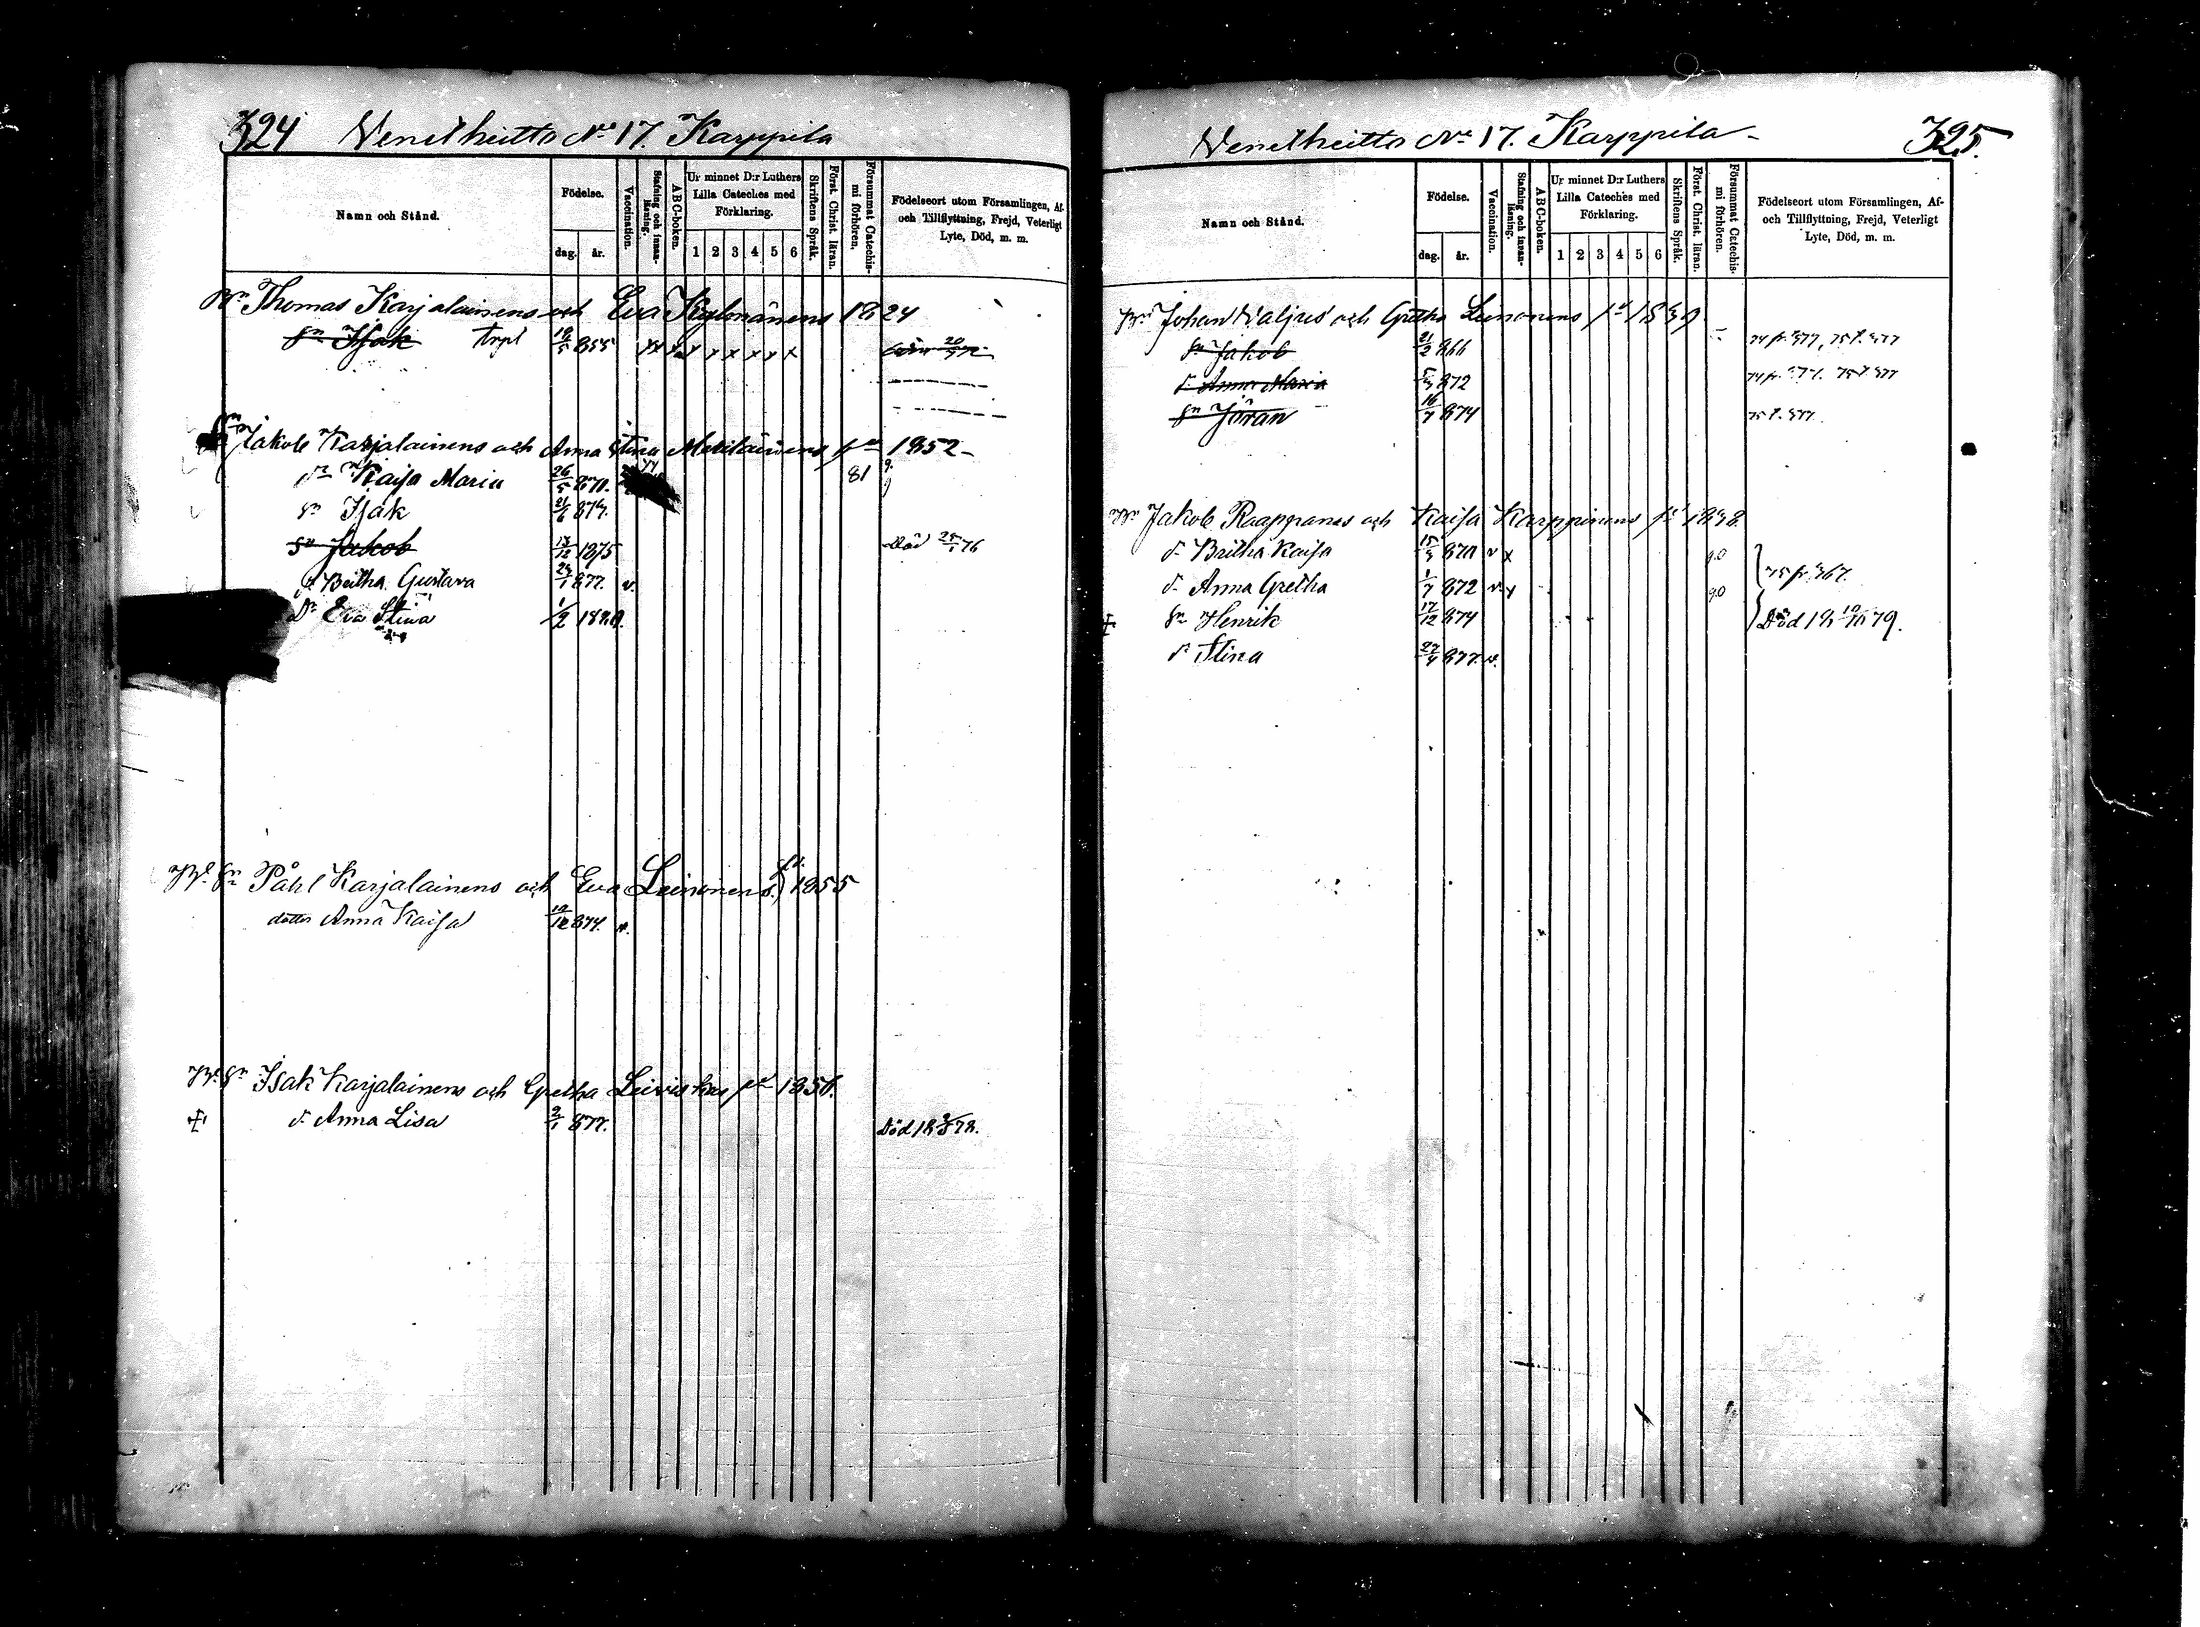 324 Venetheitto No 17. Karppila
Namn och Stånd.
Födelse.
dag. år.
Vaccination.
Stafning och innan-läsning.
ABC-boken.
Ur minnet D:r Luthers
Lilla Cateches med
Förklaring.
1 2 3 4 5 6
Skriftens Språk.
Först. Christ. läran.
Försummat Catechis-mi förhören.
Födelseort utom Församlingen, Af-
och Tillflyttning, Frejd, Veterligt
Lyte, Död, m. m.
Thomas Karjalainens och Eva Kylmänens 1824
Sn Isak 855 x x x x x x
Jakob Karjalainens och Anna Stina Meriläinens 1852
Kaisa Maria 26/5 870. 81
Sn Isak 21/6 873.
Sn Jakob 13/12 1875 Död 25/1 76
Britha Gustava 877. v.
Dr Eva Stina 1/2 1880.
Sn Påhl Karjalainens och Eva Leinonens 1855
dotter Anna Kaisa 874. v.
Sn Isak Karjalainens och Gretha Leiviskas 1856.
d. Anna Lisa 2/1 877. Död 18 78.
Venetheitto No 17. Karppila 325.
Namn och Stånd.
Födelse.
dag. år.
Vaccination.
Stafning och innan-läsning.
ABC-boken.
Ur minnet D:r Luthers
Lilla Cateches med
Förklaring.
1 2 3 4 5 6
Skriftens Språk.
Först. Christ. läran.
Försummat Catechis-mi förhören.
Födelseort utom Församlingen, Af-
och Tillflyttning, Frejd, Veterligt
Lyte, Död, m. m.
Johan Valjus och Gretha Leinonens 1839
Sn Jakob 21/2 866
d. Anna Maria 872
Sn Jöran 16/7 874
Jakob Raappanas och Kaisa Karppinens 1838
d. Britha Kaisa 870 v x
d. Anna Gretha 1/7 872 v x
Sn Henrik 17/12 874 Död 18 10/10 79.
d. Stina 877. v.